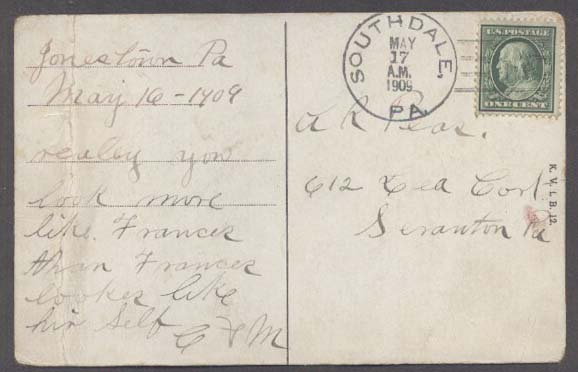 Jonestown Pa
May 16 - 1909
realey you
look more
like Frances
than Frances
lookes like
hin Self
C F M
SOUTHDALE,
MAY
17
A.M.
1909
PA.
U.S. POSTAGE
ONE CENT
A R Peas.
612 Cea Cort
Scranton Pa
K. V. i. B. 12.